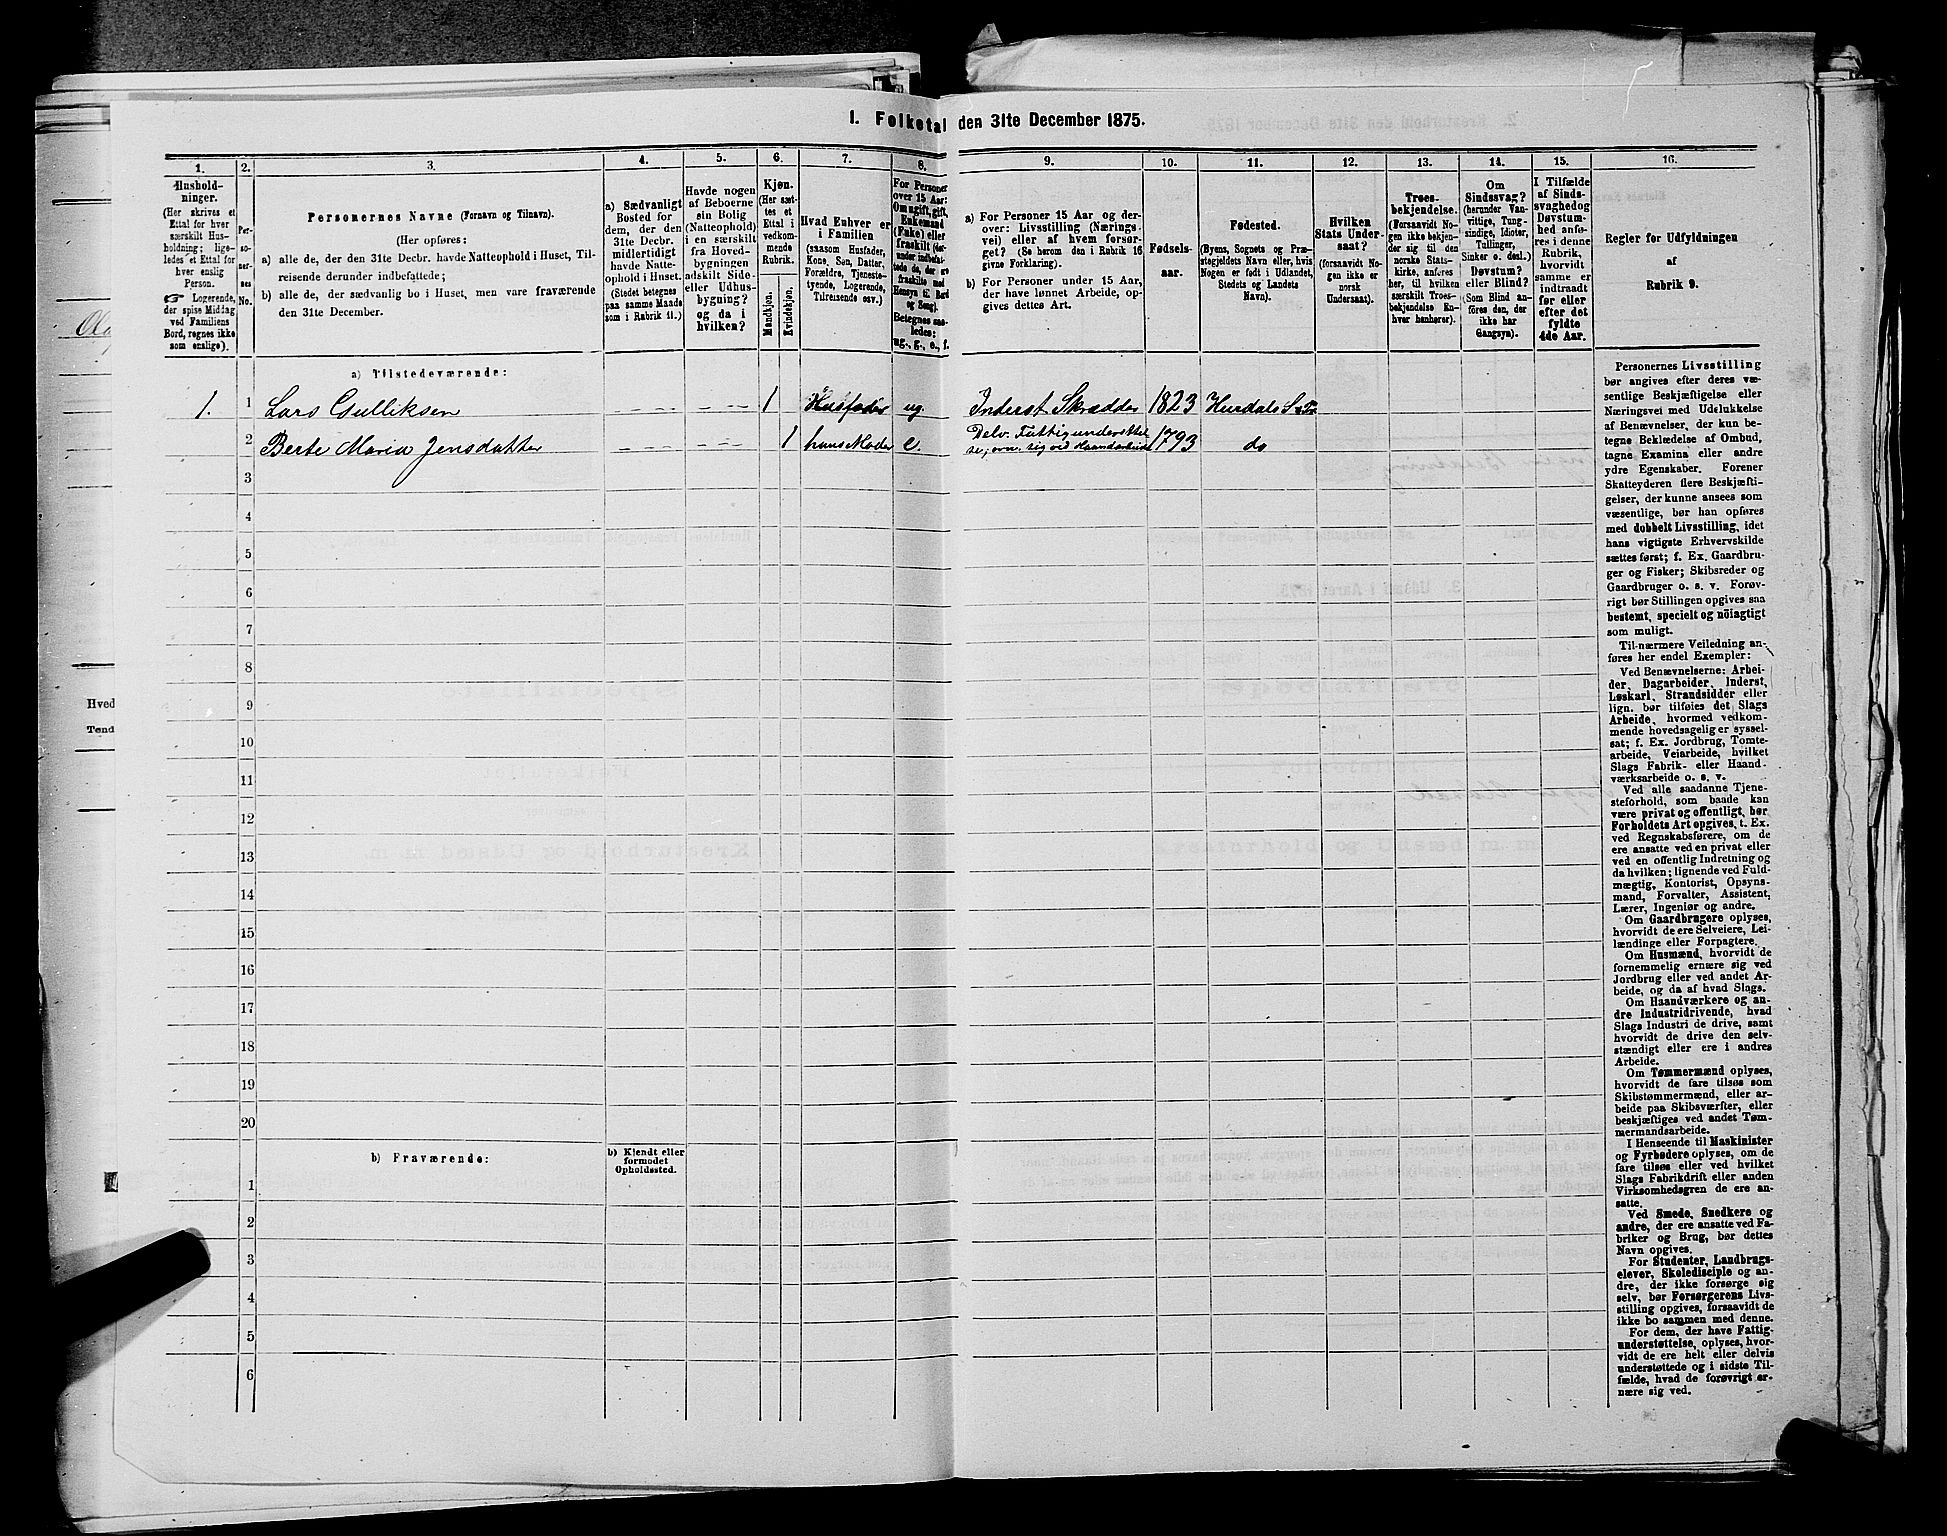 1. Folketal den 31te December 1875.
1.
2.
3.
4.
5.
6.
7.
8.
9.
10.
11.
12.
13.
14.
15.
16.
Hushold-
ninger.
(Her skrives et
Ettal for hver
særskilt Hus-
holdning; lige-
ledes et Ettal for
hver enslig
Person.
☞ Logerende,
der spise Middag
ved Familiens
Bord, regnes ikke
som enslige).
Per-
so-
ner-
nes
No.
Personernes Navne (Fornavn og Tilnavn).
(Her opføres:
a) alle de, der den 31te Decbr. havde Natteophold i Huset, Til-
reisende derunder indbefattede;
b) alle de, der sædvanlig bo i Huset, men vare fraværende
den 31te December.
a) Sædvanligt
Bosted for
dem, der den
31te Decbr.
midlertidigt
havde Natte-
ophold i Huset.
(Stedet betegnes
paa samme Maade
som i Rubrik 11.)
Havde nogen
af Beboerne
sin Bolig
(Natteophold)
i en særskilt
fra Hoved-
bygningen
adskilt Side-
eller Udhus-
bygning?
og da i
hvilken?
Kjøn.
(Her sæt-
tes et
Ettal i
vedkom-
mende
Rubrik.
Mandkjøn.
Kvindekjøn.
Hvad Enhver er
i Familien
(saasom Husfader,
Kone, Søn, Datter,
Forældre, Tjeneste-
tyende, Logerende,
Tilreisende osv.)
For Personer
over 15 Aar:
Om ugift, gift,
Enkemand
(Enke) eller
fraskilt (der-
under indbefat-
tede de, der ere
fraskilte med
Hensyn til Bord
og Seng).
Betegnes saa-
ledes:
ug., g., e., f.
a) For Personer 15 Aar og der-
over: Livsstilling (Nærings-
vei) eller af hvem forsør-
get? (Se herom den i Rubrik 16
givne Forklaring).
b) For Personer under 15 Aar,
der have lønnet Arbeide, op-
gives dettes Art.
Fødsels-
aar.
Fødested.
(Byens, Sognets og Præ-
stegjeldets Navn eller, hvis
Nogen er født i Udlandet,
Stedets og Landets
Navn).
Hvilken
Stats Under-
saat?
(forsaavidt No-
gen ikke er
norsk
Undersaat).
Troes-
bekjendelse.
(Forsaavidt No-
gen ikke bekjen-
der sig til den
norske Stats-
kirke, anføres
her, til hvilken
særskilt Troes-
bekjendelse En-
hver henhører).
Om
Sindssvag?
(herunder Van-
vittige, Tung-
sindige, Idioter,
Tullinger,
Sinker o. desl.)
Døvstum?
eller Blind?
(Som Blind an-
føres den, der
ikke har
Gangsyn).
I Tilfælde
af Sinds-
svaghed og
Døvstum-
hed anfø-
res i denne
Rubrik,
hvorvidt
samme er
indtraadt
før eller
efter det
fyldte
4de Aar.
Regler for Udfyldningen
af
Rubrik 9.
a) Tilstedeværende:
1. 1 Lars Gulliksen 1 Husfader ug. Inderst. Skrædder 1823 Hurdals
2 Berte Maria Jensdatter 1 hans Moder e. Delv. Fattigunderstøttel 1793 do
se; ern. sig ved Haandarbeide
3
4
5
6
7
8
9
10
11
12
13
14
15
16
17
18
19
20
b) Fraværende:
b) Kjendt eller
formodet
Opholdssted.
1
2
3
4
5
6
Personernes Livsstilling
bør angives efter deres væ-
sentlige Beskjæftigelse eller
Næringsvei med Udelukkelse
af Benævnelser, der kun be-
tegne Beklædelse af Ombud,
tagne Examina eller andre
ydre Egenskaber. Forener
Skatteyderen flere Beskjæfti-
gelser, der kunne ansees som
væsentlige, bør han opføres
med dobbelt Livsstilling, idet
hans vigtigste Erhvervskilde
sættes først; f. Ex. Gaardbru-
ger og Fisker; Skibsreder og
Gaardbruger o. s. v. Forøv-
rigt bør Stillingen opgives saa
bestemt, specielt og nøiagtigt
som muligt.
Til nærmere Veiledning an-
føres her endel Exempler:
Ved Benævnelserne: Arbei-
der, Dagarbeider, Inderst,
Løskarl, Strandsidder eller
lign. bør tilføies det Slags
Arbeide, hvormed vedkom-
mende hovedsagelig er syssel-
sat; f. Ex. Jordbrug, Tomte-
arbeide, Veiarbeide, hvilket
Slags Fabrik- eller Haand-
værksarbeide o. s. v.
Ved alle saadanne Tjene-
steforhold, som baade kan
være privat og offentligt, bør
Forholdets Art opgives, t. Ex.
ved Regnskabsførere, om de
ere ansatte ved en privat eller
ved en offentlig Indretning og
da hvilken; lignende ved Fuld-
mægtig, Kontorist, Opsyns-
mand, Forvalter, Assistent,
Lærer, Ingeniør og andre.
Om Gaardbrugere oplyses,
hvorvidt de ere Selveiere, Lei-
lændinge eller Forpagtere.
Om Husmænd, hvorvidt de
fornemmelig ernære sig ved
Jordbrug eller ved andet Ar-
beide, og da af hvad Slags.
Om Haandværkere og an-
dre Industridrivende, hvad
Slags Industri de drive, samt
hvorvidt de drive den selv-
stændigt eller ere i andres
Arbeide.
Om Tømmermænd oplyses,
hvorvidt de fare tilsøs som
Skibstømmermænd, eller ar-
beide paa Skibsværfter, eller
beskjæftiges ved andet Tøm-
mermandsarbeide.
I Henseende til Maskinister
og Fyrbødere oplyses, om de
fare tilsøs eller ved hvilket
Slags Fabrikdrift eller anden
Virksomhedsgren de ere an-
satte.
Ved Smede, Snedkere og
andre, der ere ansatte ved Fa-
briker og Brug, bør dettes
Navn opgives.
For Studenter, Landbrugs-
elever, Skoledisciple og an-
dre, der ikke forsørge sig
selv, bør Forsørgerens Livs-
stilling opgives, forsaavidt de
ikke bo sammen med denne.
For dem, der have Fattig-
understøttelse, oplyses, hvor-
vidt de ere helt eller delvis
understøttede og i sidste Til-
fælde, hvad de forøvrigt er-
nære sig ved.
Hved
Tønd